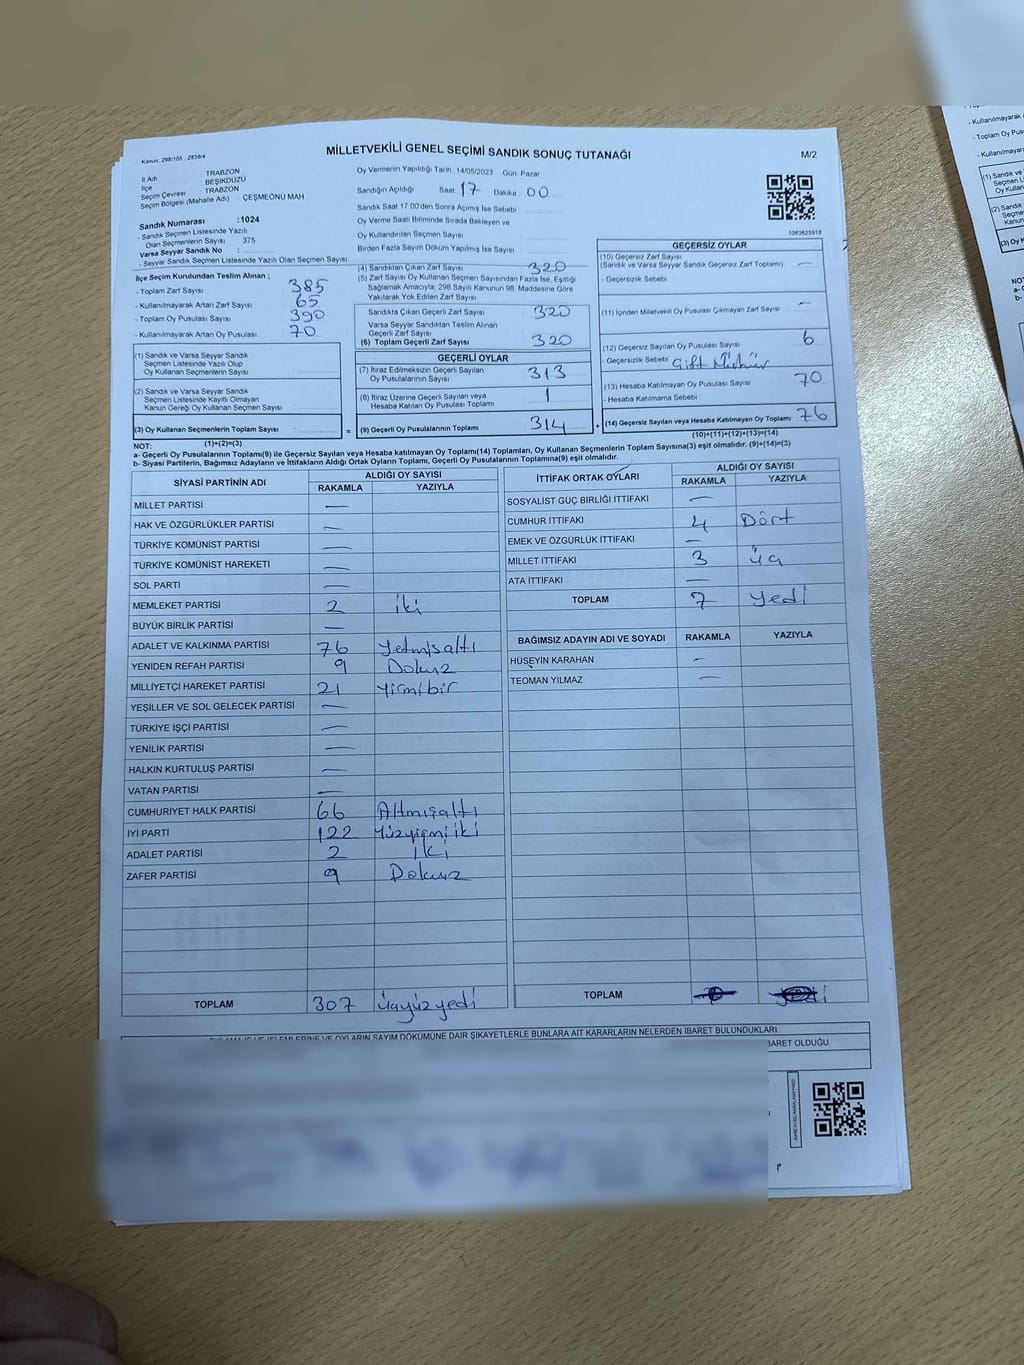 Kanun: 298/105 . 2839/4
MİLLETVEKİLİ GENEL SEÇİMİ SANDIK SONUÇ TUTANAĞI
M/2
İl Adı TRABZON
İlçe BEŞİKDÜZÜ
Seçim Çevresi TRABZON
Seçim Bölgesi (Mahalle Adı) ÇEŞMEÖNÜ MAH
Sandık Numarası :1024
- Sandık Seçmen Listesinde Yazılı
Olan Seçmenlerin Sayısı 375
Varsa Seyyar Sandık No :
- Seyyar Sandık Seçmen Listesinde Yazılı Olan Seçmen Sayısı:
Oy Vermenin Yapıldığı Tarih 14/05/2023 Gün Pazar
Sandığın Açıldığı Saat 17 Dakika 00
Sandık Saat 17:00'den Sonra Açımış İse Sebebi
Oy Verme Saati Bitiminde Sırada Bekleyen ve
Oy Kullandırılan Seçmen Sayısı
Birden Fazla Sayım Döküm Yapılmış İse Sayısı
İlçe Seçim Kurulundan Teslim Alınan ;
- Toplam Zarf Sayısı 385
- Kullanılmayarak Artan Zarf Sayısı 65
- Toplam Oy Pusulası Sayısı 390
- Kullanılmayarak Artan Oy Pusulası 70
(1) Sandık ve Varsa Seyyar Sandık
Seçmen Listesinde Yazılı Olup
Oy Kullanan Seçmenlerin Sayısı
(2) Sandık ve Varsa Seyyar Sandık
Seçmen Listesinde Kayıtlı Olmayan
Kanun Gereği Oy Kullanan Seçmen Sayısı
(3) Oy Kullanan Seçmenlerin Toplam Sayısı
(1)+(2)=(3)
(4) Sandıktan Çıkan Zarf Sayısı 320
(5) Zarf Sayısı Oy Kullanan Seçmen Sayısından Fazla İse, Eşitliği
Sağlamak Amacıyla; 298 Sayılı Kanunun 98. Maddesine Göre
Yakılarak Yok Edilen Zarf Sayısı
Sandıkta Çıkan Geçerli Zarf Sayısı 320
Varsa Seyyar Sandıktan Teslim Alınan
Geçerli Zarf Sayısı
(6) Toplam Geçerli Zarf Sayısı 320
GEÇERLİ OYLAR
(7) İtiraz Edilmeksizin Geçerli Sayılan
Oy Pusulalarının Sayısı 313
(8) İtiraz Üzerine Geçerli Sayılan veya
Hesaba Katılan Oy Pusulası Toplamı 1
= (9) Geçerli Oy Pusulalarının Toplamı 314
1083625918
GEÇERSİZ OYLAR
(10) Geçersiz Zarf Sayısı
(Sandık ve Varsa Seyyar Sandık Geçersiz Zarf Toplamı) —
- Geçersizlik Sebebi
(11) İçinden Milletvekili Oy Pusulası Çıkmayan Zarf Sayısı —
(12) Geçersiz Sayılan Oy Pusulası Sayısı 6
- Geçersizlik Sebebi Çift Mühür
(13) Hesaba Katılmayan Oy Pusulası Sayısı 70
- Hesaba Katılmama Sebebi
+ (14) Geçersiz Sayılan veya Hesaba Katılmayan Oy Toplamı 76
(10)+(11)+(12)+(13)=(14)
NOT:
a- Geçerli Oy Pusulasının Toplamı(9) ile Geçersiz Sayılan veya Hesaba katılmayan Oy Toplamı(14) Toplamları, Oy Kullanan Seçmenlerin Toplam Sayısına(3) eşit olmalıdır. (9)+(14)=(3)
b- Siyasi Partilerin, Bağımsız Adayların ve İttifakların Aldığı Ortak Oyların Toplamı, Geçerli Oy Pusulalarının Toplamına(9) eşit olmalıdır.
SİYASİ PARTİNİN ADI ALDIĞI OY SAYISI
RAKAMLA YAZIYLA
MİLLET PARTİSİ —
HAK VE ÖZGÜRLÜKLER PARTİSİ —
TÜRKİYE KOMÜNİST PARTİSİ —
TÜRKİYE KOMÜNİST HAREKETİ —
SOL PARTİ —
MEMLEKET PARTİSİ 2 iki
BÜYÜK BİRLİK PARTİSİ —
ADALET VE KALKINMA PARTİSİ 76 Yetmişaltı
YENİDEN REFAH PARTİSİ 9 Dokuz
MİLLİYETÇİ HAREKET PARTİSİ 21 yirmibir
YEŞİLLER VE SOL GELECEK PARTİSİ —
TÜRKİYE İŞÇİ PARTİSİ —
YENİLİK PARTİSİ —
HALKIN KURTULUŞ PARTİSİ —
VATAN PARTİSİ —
CUMHURİYET HALK PARTİSİ 66 Altmışaltı
İYİ PARTİ 122 Yüzyirmiiki
ADALET PARTİSİ 2 iki
ZAFER PARTİSİ 9 Dokuz
TOPLAM 307 üçyüzyedi
İTTİFAK ORTAK OYLARI ALDIĞI OY SAYISI
RAKAMLA YAZIYLA
SOSYALİST GÜÇ BİRLİĞİ İTTİFAKI —
CUMHUR İTTİFAKI 4 Dört
EMEK VE ÖZGÜRLÜK İTTİFAKI —
MİLLET İTTİFAKI 3 üç
ATA İTTİFAKI —
TOPLAM 7 yedi
BAĞIMSIZ ADAYIN ADI VE SOYADI RAKAMLA YAZIYLA
HÜSEYİN KARAHAN —
TEOMAN YILMAZ —
TOPLAM
İŞLEMLERİNE VE OYLARIN SAYIM DÖKÜMÜNE DAİR ŞİKAYETLERLE BUNLARA AİT KARARLARIN NELERDEN İBARET BULUNDUKLARI
BARET OLDUĞU